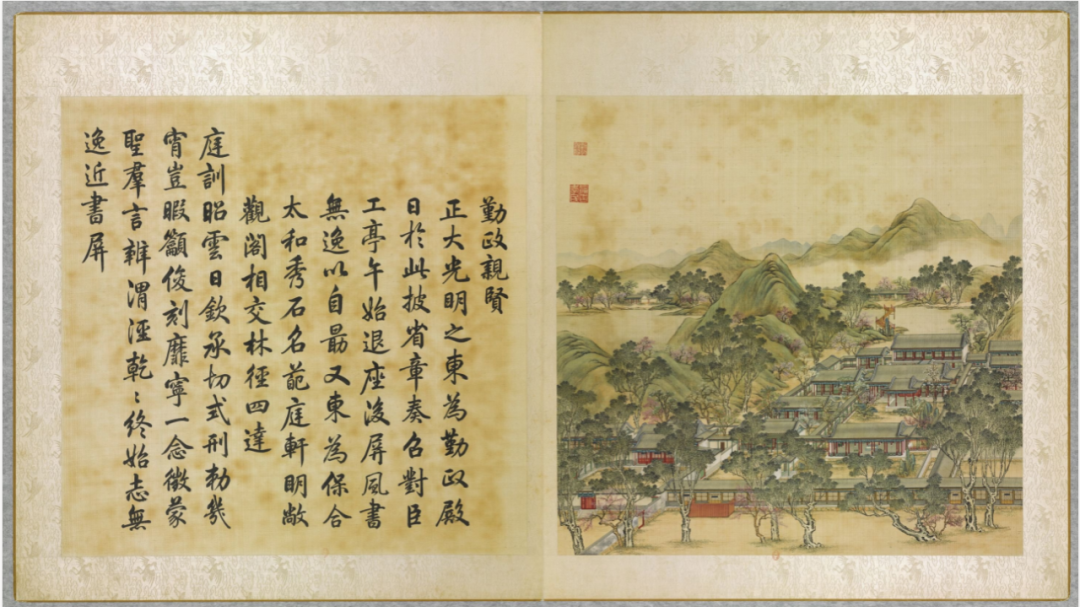 勤政親賢
正大光明之東為勤政殿
日於此披省章奏召對臣
工亭午始退座後屏風書
無逸以自勗又東為保合
太和秀石名葩庭軒明敞
觀閣相交林徑四達
庭訓昭雲日欽承切式刑勑幾
宵豈暇籲俊刻靡寧一念徵蒙
聖羣言辨渭涇乾〻終始志無
逸近書屏